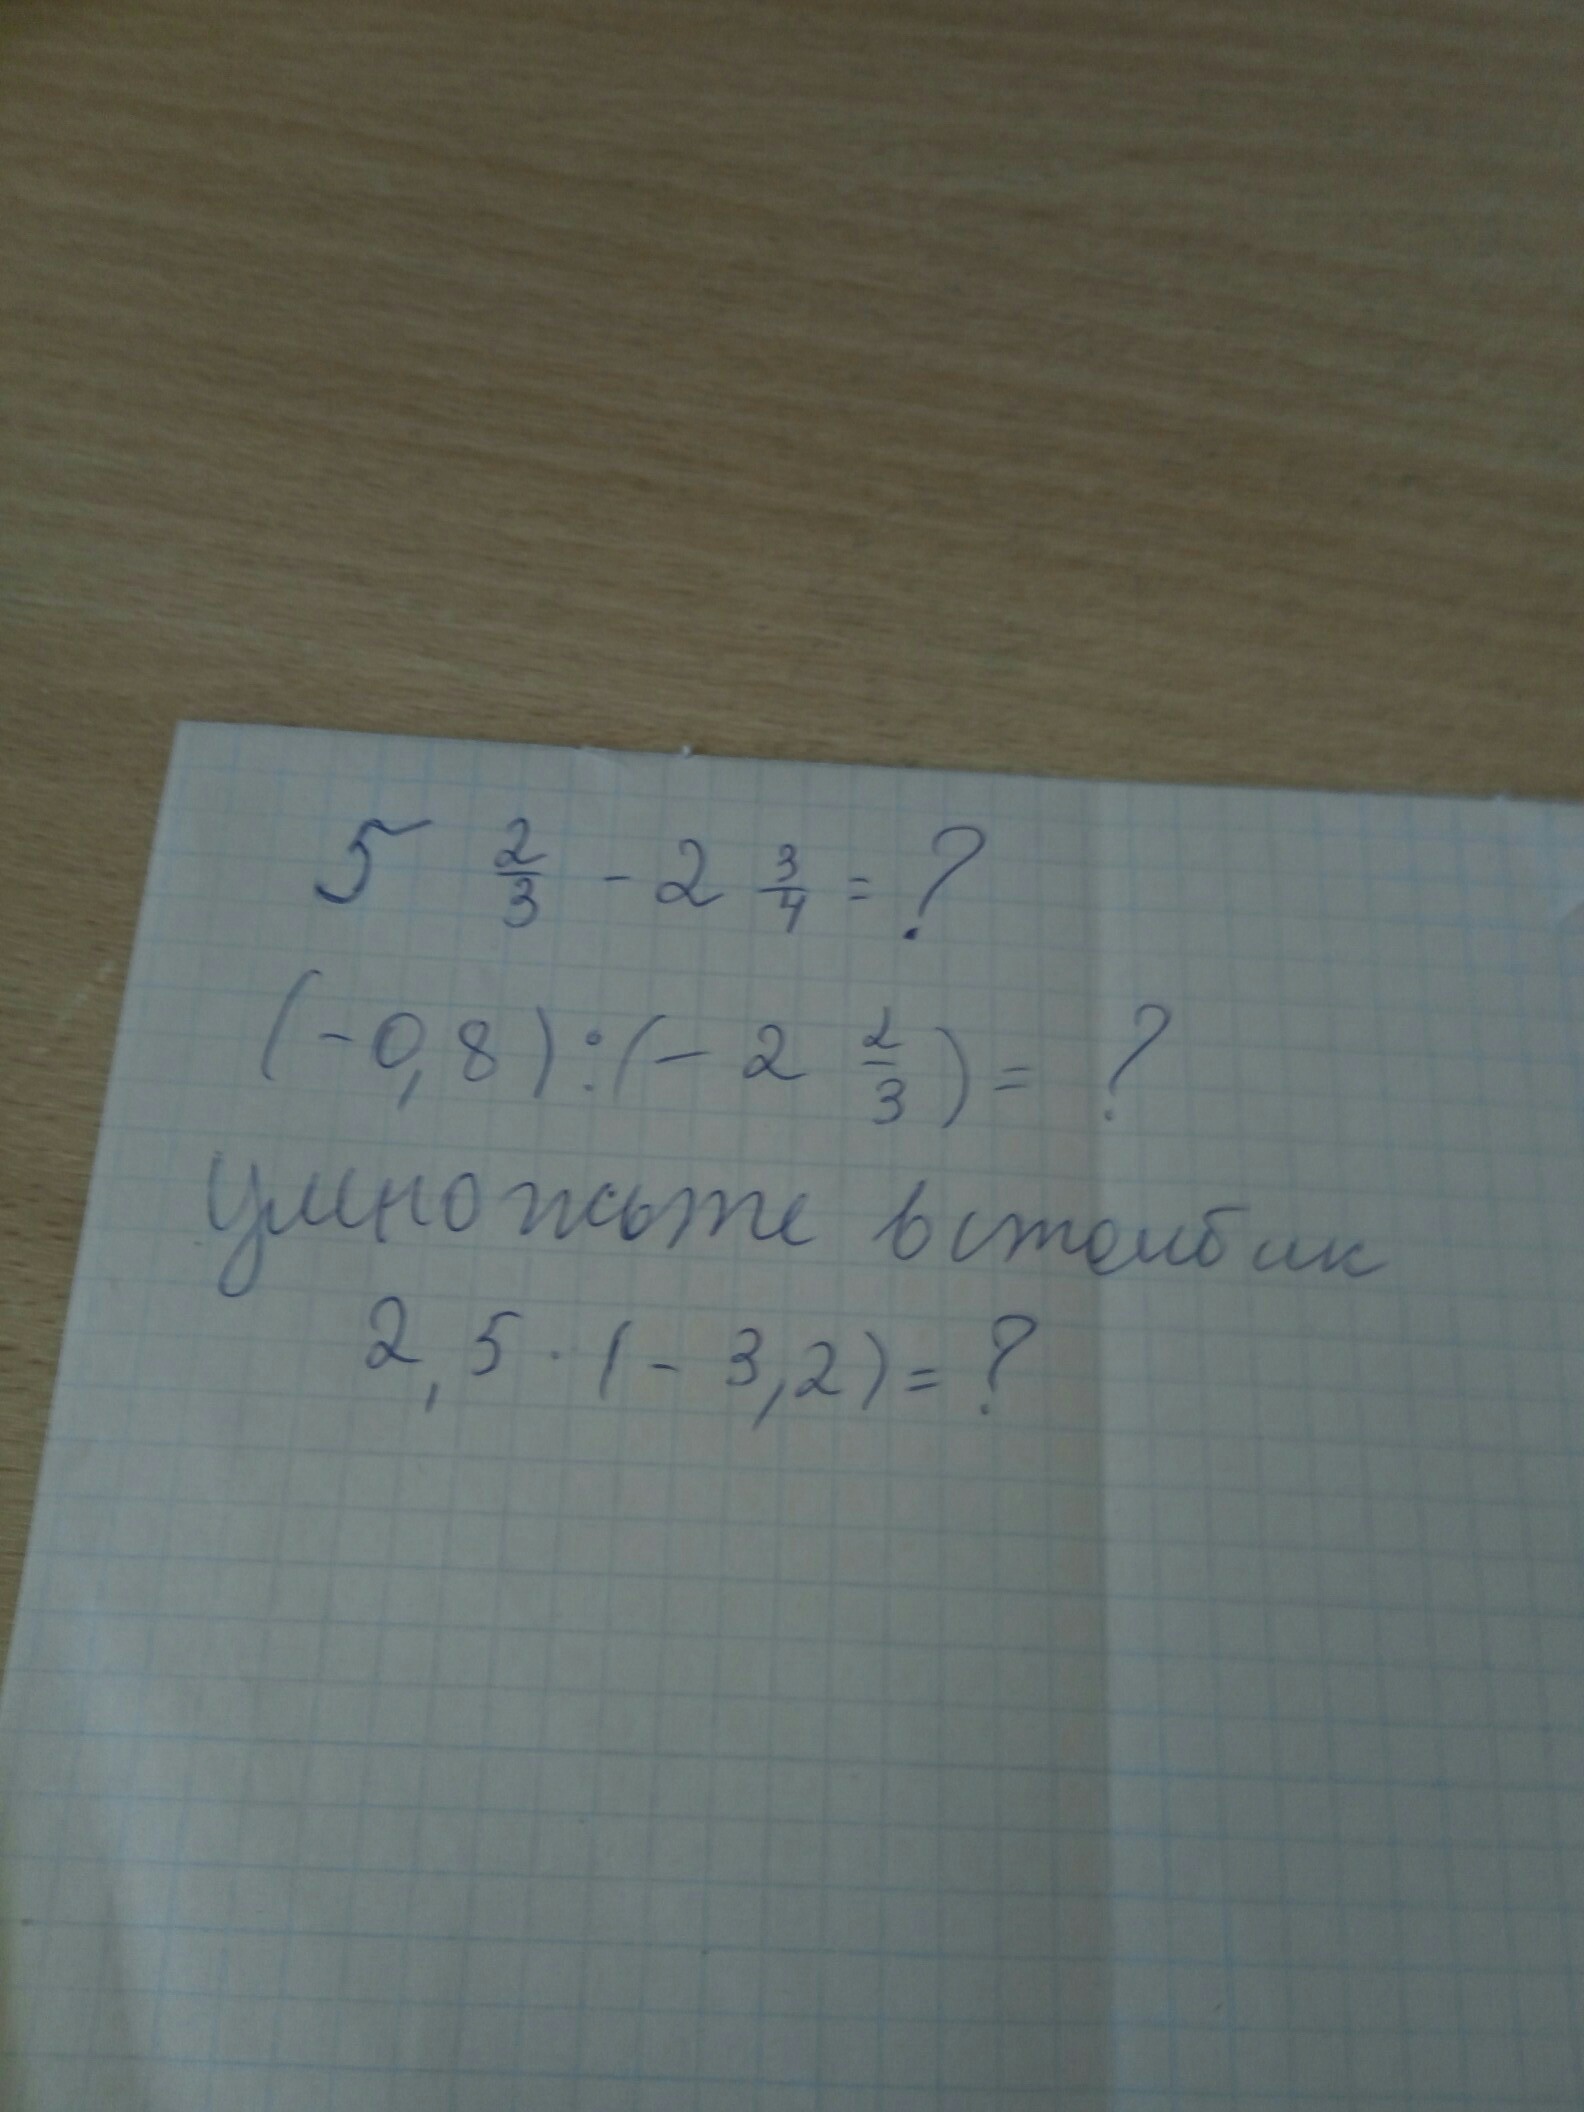 5 2/3 - 2 3/4 = ?
(-0,8):(- 2 2/3) = ?
умножьте в столбик
2,5 · (- 3,2) = ?